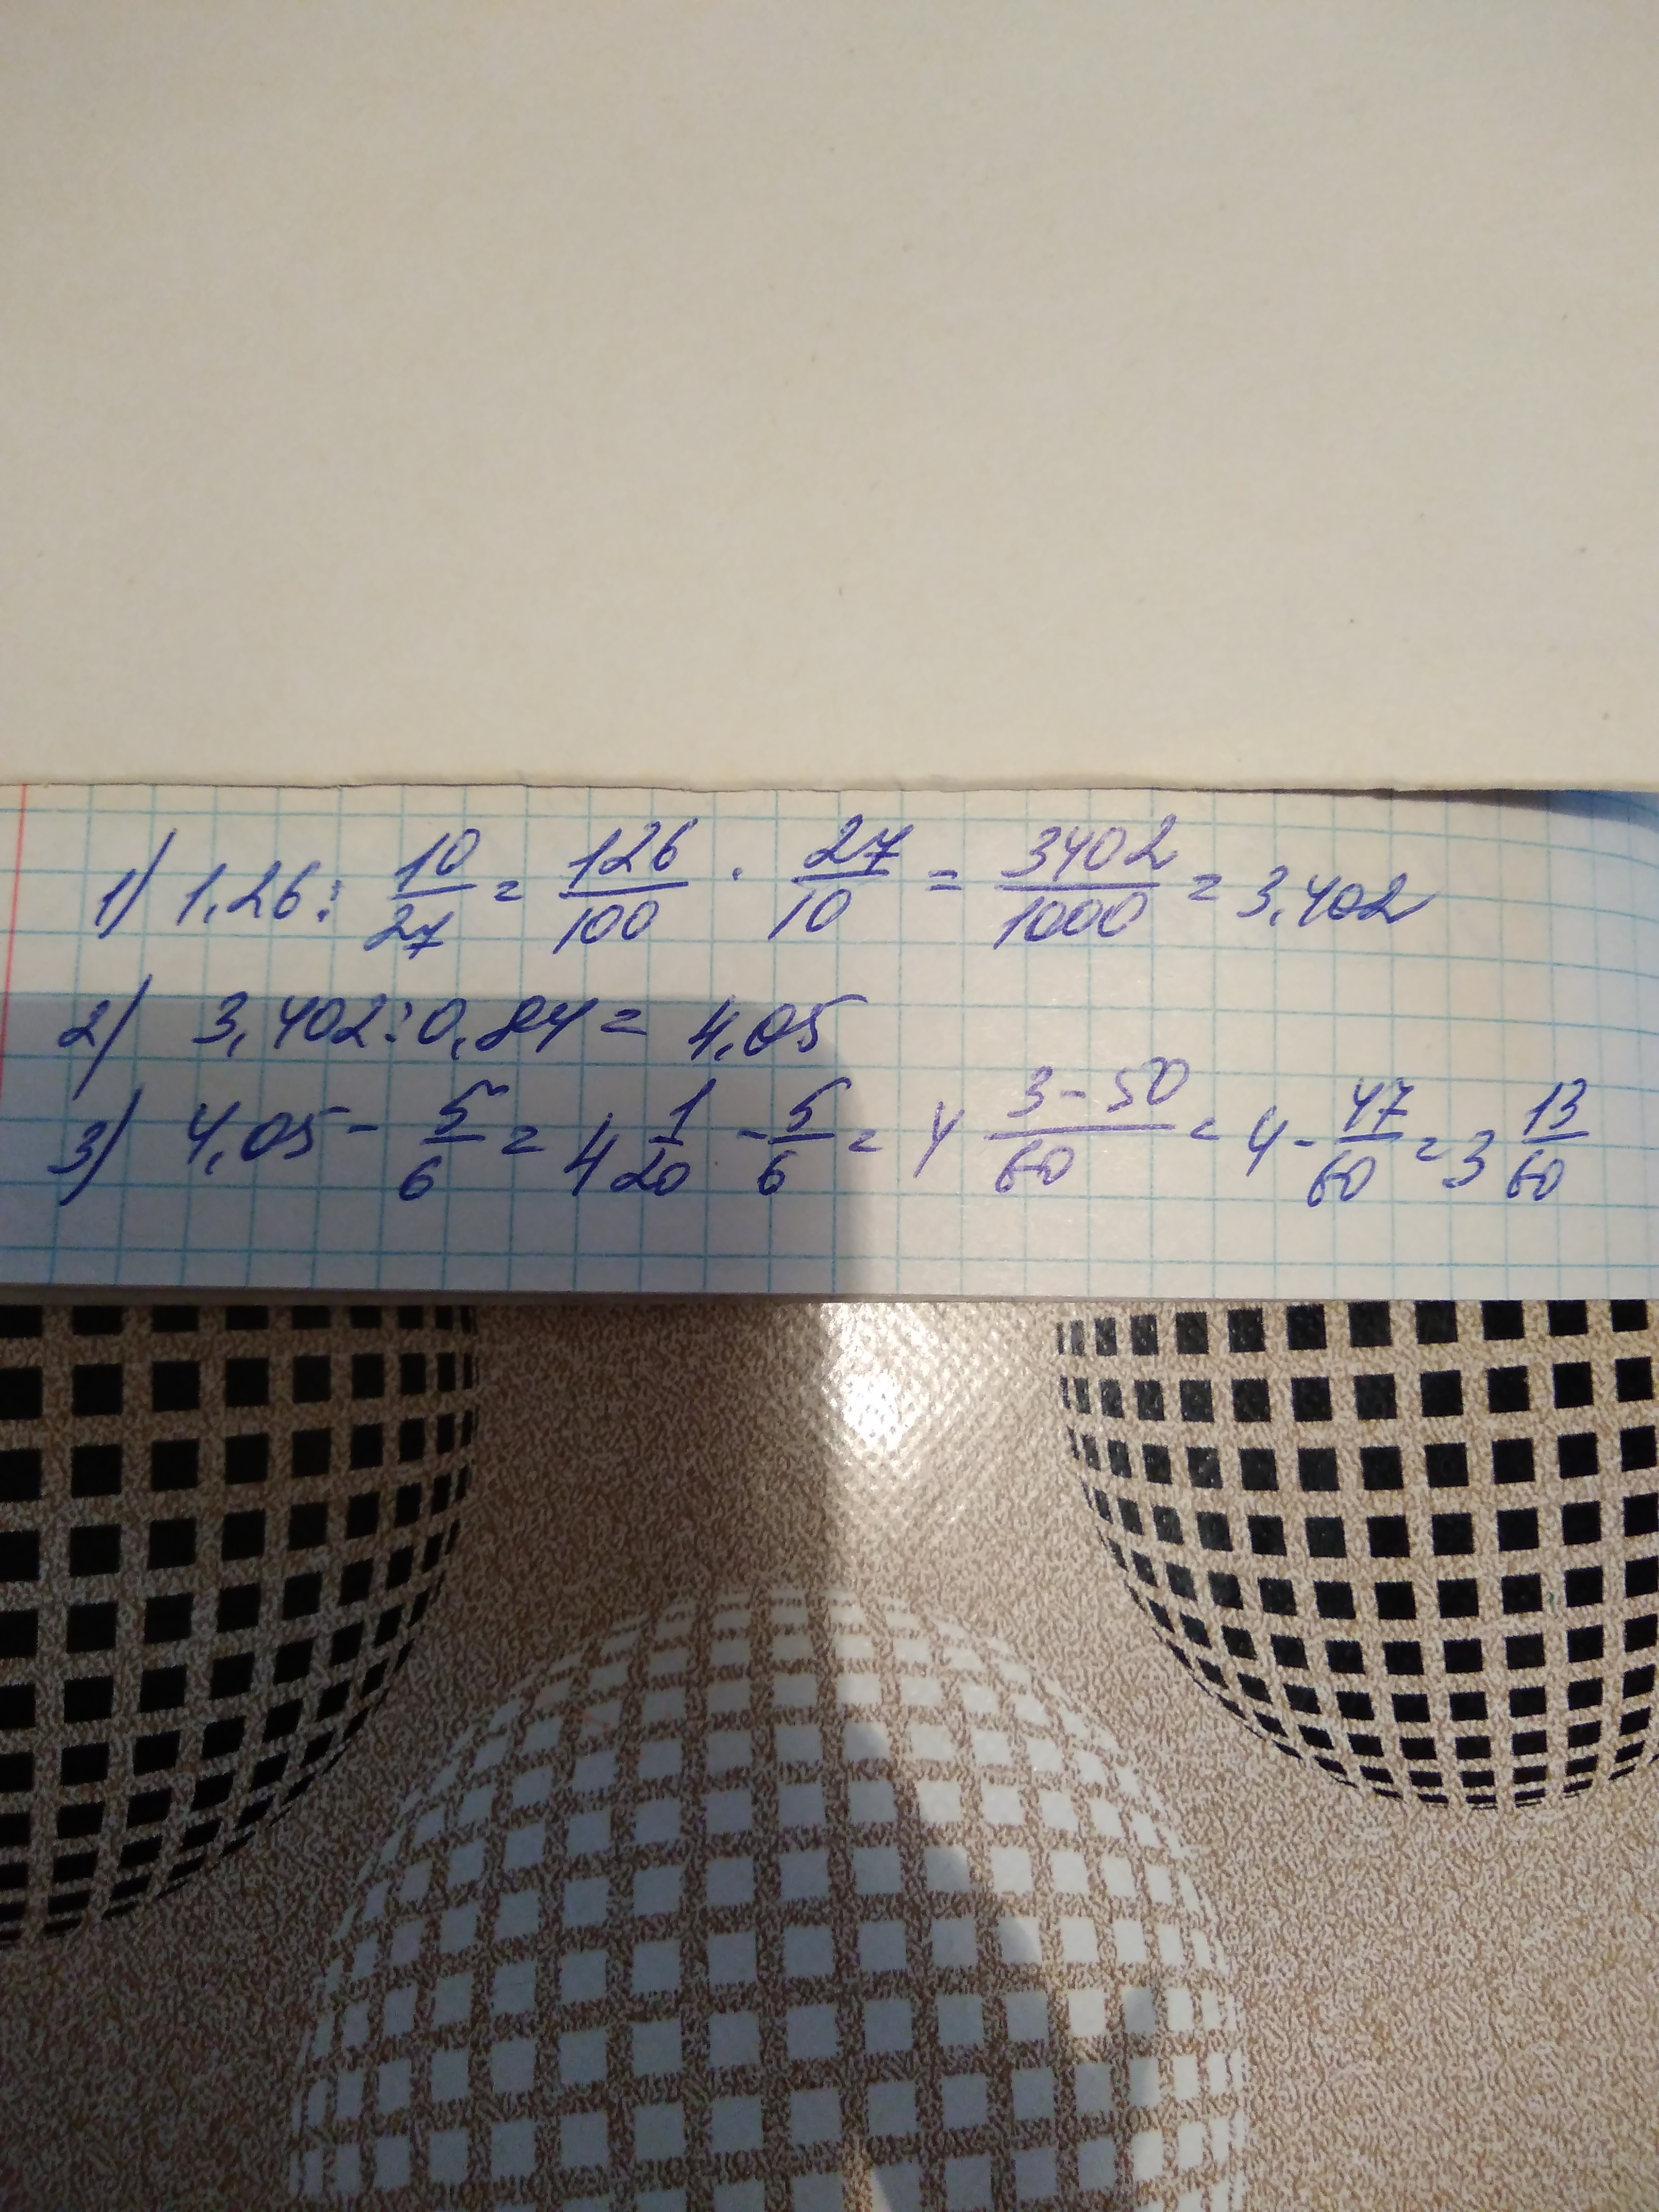 1) 1,26 : 10/27 = 126/100 · 27/10 = 3402/1000 = 3,402
2) 3,402 : 0,84 = 4,05
3) 4,05 - 5/6 = 4 1/20 - 5/6 = 4 3-50/60 = 4 - 47/60 = 3 13/60